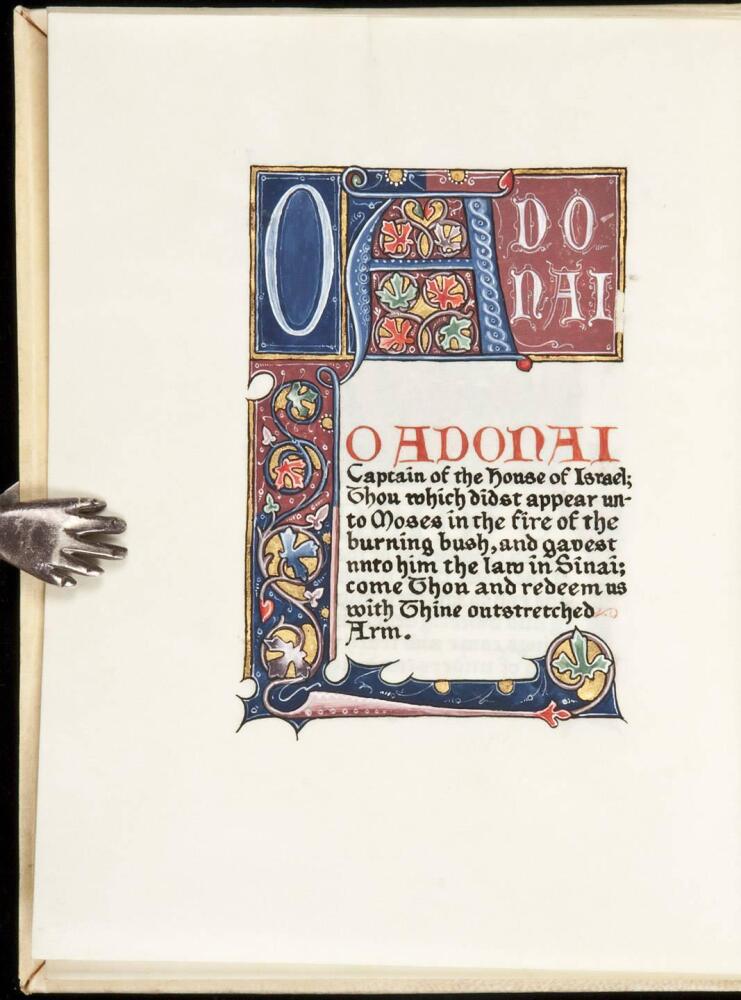 O ADO-
NAI
O ADONAI
Captain of the House of Israel;
Thou which didst appear un-
to Moses in the fire of the
burning bush, and gavest
unto him the law in Sinai;
come Thou and redeem us
with Thine outstretched
Arm.